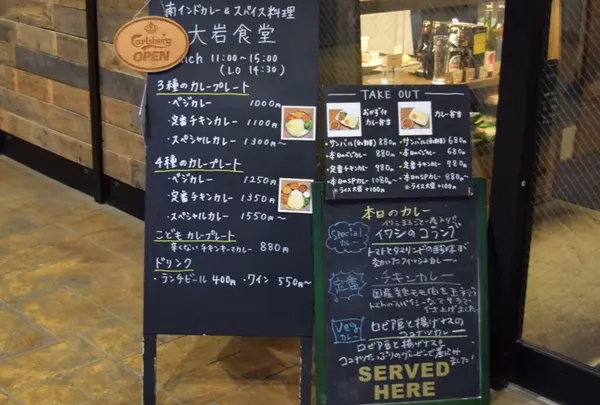 南インドカレー & スパイス料理
大岩食堂
Carlsberg
OPEN
nch 11:00〜15:00
(L.O 14:30)
3種のカレープレート
・ベジカレー 1000円
・定番チキンカレー 1100円
・スペシャルカレー 1300〜
4種のカレープレート
・ベジカレー 1250円
・定番チキンカレー 1350円
・スペシャルカレー 1550〜
こどもカレープレート
辛くないチキンキーマカレー 880円
ドリンク
・ランチビール 400円 ・ワイン 550円〜
TAKE OUT
おかず付
カレー弁当
・サンバル(和風) 880円
・本日のベジカレー 880円
・定番チキンカレー 980円
・本日のSPカレー 1080〜
※ライス大盛 +100円
カレー弁当
・サンバル 680
・本日のベジカレー 680
・定番チキンカレー 780
・本日のSPカレー
※ライス大盛 +100円
本日のカレー
Special
カレー
イワシまるごと一尾入り
イワシのコランブ
トマトとタマリンドの酸味が
効いたフィッシュカレー。
定番
チキンカレー
国産鶏モモ肉を
トマトのスパイシーなマサラで
仕上げました
Veg
カレー
ロビア豆と揚げナスの
ココナッツカレー
ロビア豆と揚げナスを
ココナッツたっぷりのグレービーで煮込みました!
SERVED
HERE